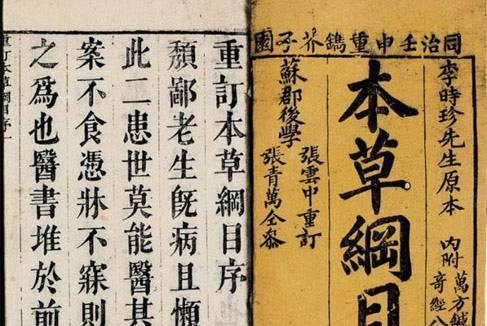 同治壬申重鐫芥子園
李時珍先生原本
內附
萬方鍼
奇經八
本草綱目
張雲中重訂
張青萬仝參
蘇郡後學
重訂本草綱目序
頽鄙老生旣病且懶
此二患世莫能醫其
案不食憑牀不寐則
之為也醫書堆於前
重訂本草綱目序一